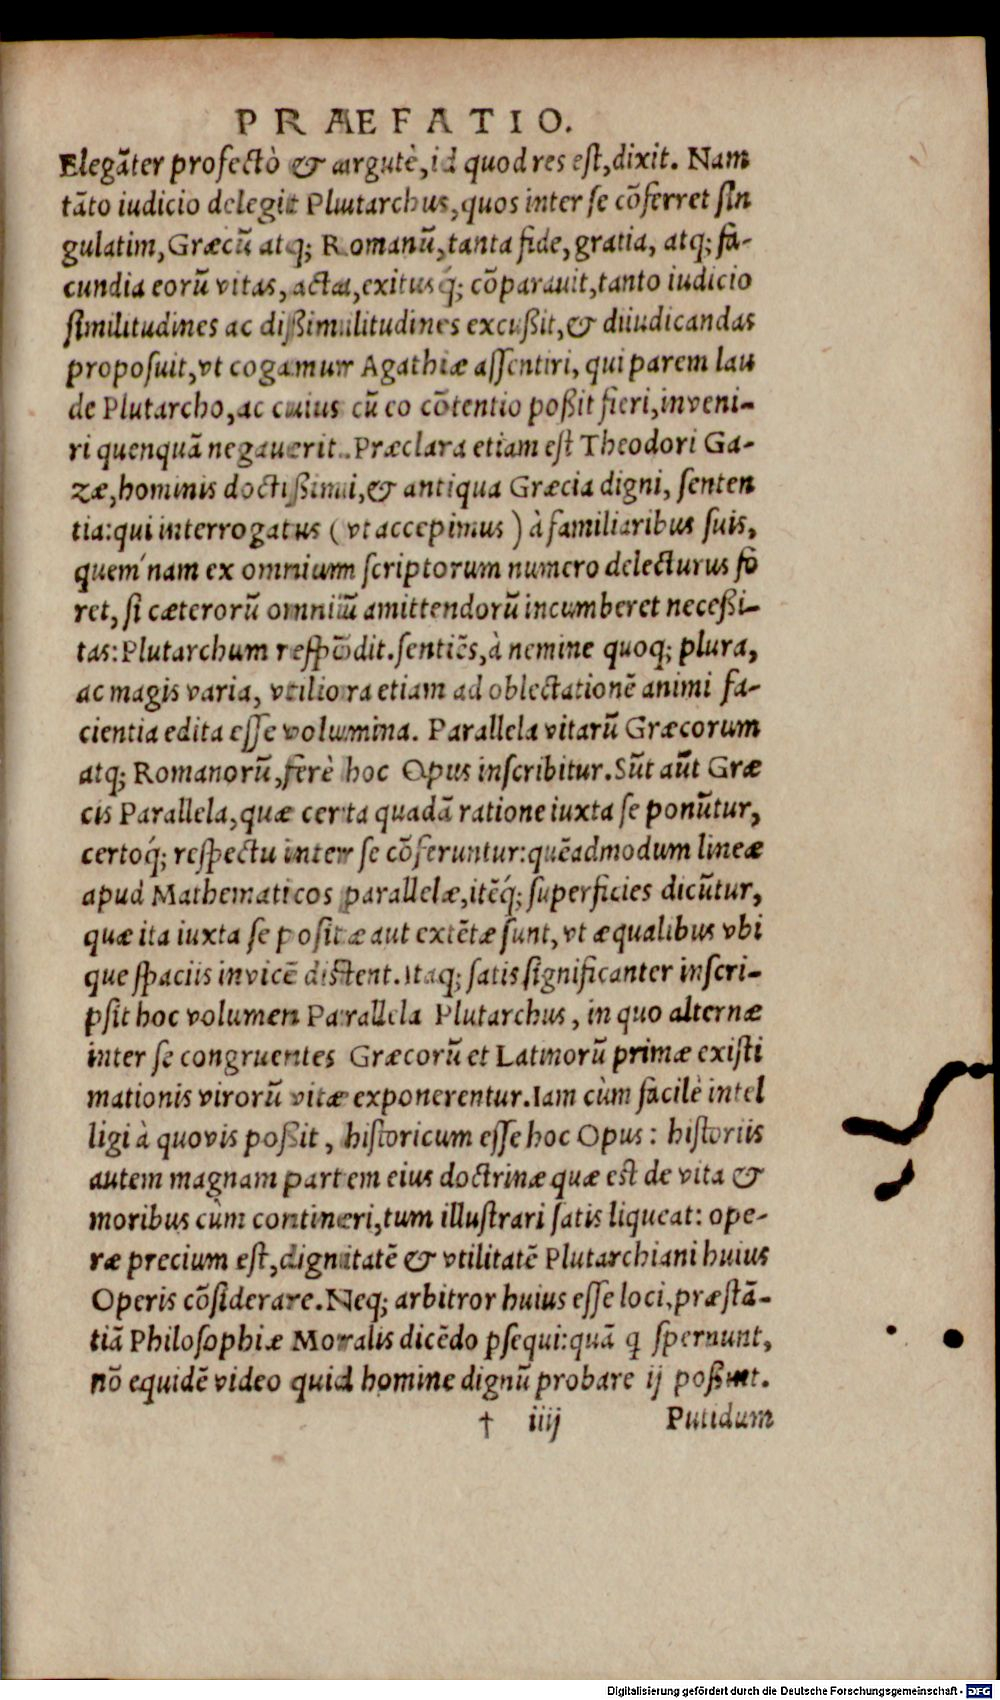 PRAEFATIO.
Elegãter profectò & argutè, id quod res est, dixit. Nam
tãto iudicio delegit Plutarchus, quos inter se cõferret sin
gulatim, Græcũ atq; Romanũ, tanta fide, gratia, atq; fa-
cundia eorũ vitas, acta, exitusq́; cõparauit, tanto iudicio
similitudines ac dißimilitudines excußit, & diiudicandas
proposuit, vt cogamur Agathiæ assentiri, qui parem lau
de Plutarcho, ac cuius cũ eo cõtentio poßit fieri, inveni-
ri quenquã negauerit. Præclara etiam est Theodori Ga-
zæ, hominis doctißimi, & antiqua Græcia digni, senten
tia: qui interrogatus (vt accepimus) à familiaribus suis,
quem´nam ex omnium scriptorum numero delecturus fo
ret, si cæterorũ omniũ amittendorũ incumberet neceßi-
tas: Plutarchum respõdit. sentiẽs, à nemine quoq; plura,
ac magis varia, vtiliora etiam ad oblectationẽ animi fa-
cientia edita esse volumina. Parallela vitarũ Græcorum
atq; Romanorũ, ferè hoc Opus inscribitur. Sũt aũt Græ
cis Parallela, quæ certa quadã ratione iuxta se ponũtur,
certoq́; respectu inter se cõferuntur: quẽadmodum lineæ
apud Mathematicos parallelæ, itẽq́; superficies dicũtur,
quæ ita iuxta se positæ aut extẽtæ sunt, vt æqualibus vbi
que spaciis invicẽ distent. Itaq; satis significanter inscri-
psit hoc volumen Parallela Plutarchus, in quo alternæ
inter se congruentes Græcorũ et Latinorũ primæ existi
mationis virorũ vitæ exponerentur. Iam cùm facilè intel
ligi à quovis poßit, historicum esse hoc Opus: historiis
autem magnam partem eius doctrinæ quæ est de vita &
moribus cùm contineri, tum illustrari satis liqueat: ope-
ræ precium est, dignitatẽ & vtilitatẽ Plutarchiani huius
Operis cõsiderare. Neq; arbitror huius esse loci, præstã-
tiã Philosophiæ Moralis dicẽdo ꝑsequi: quã q̃ spernunt,
nõ equidẽ video quid homine dignũ probare ij poßint.
† iiij Putidum
Digitalisierung gefördert durch die Deutsche Forschungsgemeinschaft - DFG